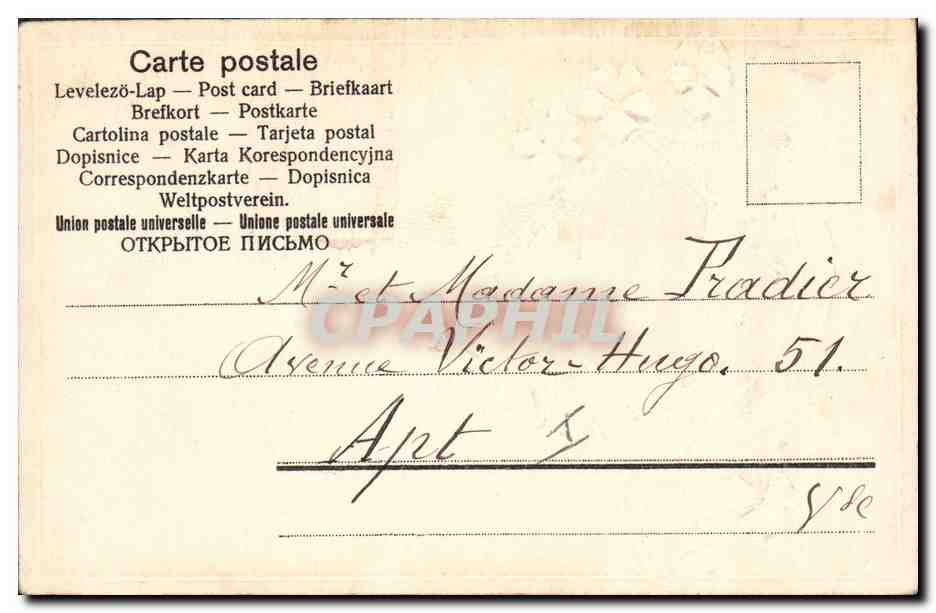 Carte postale
Levelező-Lap — Post card — Briefkaart
Brefkort — Postkarte
Cartolina postale — Tarjeta postal
Dopisnice — Karta Korespondencyjna
Correspondenzkarte — Dopisnica
Weltpostverein.
Union postale universelle — Unione postale universale
ОТКРЫТОЕ ПИСЬМО
Mr et Madame Pradier
CPAPHIL
Avenue Victor-Hugo. 51.
Apt